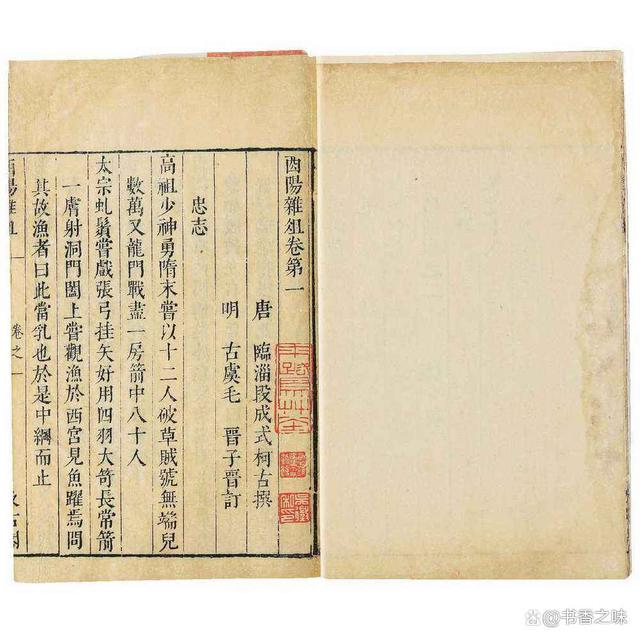 酉陽雜俎卷第一
唐 臨淄段成式柯古撰
明 古虞毛 晉子晉訂
忠志
高祖少神勇隋末嘗以十二人破草賊號無端兒
數萬又龍門戰盡一房箭中八十人
太宗虬鬚嘗戲張弓挂矢好用四羽大箭長常箭
一膚射洞門闔上嘗觀漁於西宮見魚躍焉問
其故漁者曰此當乳也於是中網而止
酉陽雜俎
卷之一
汲古閣
@书香之味